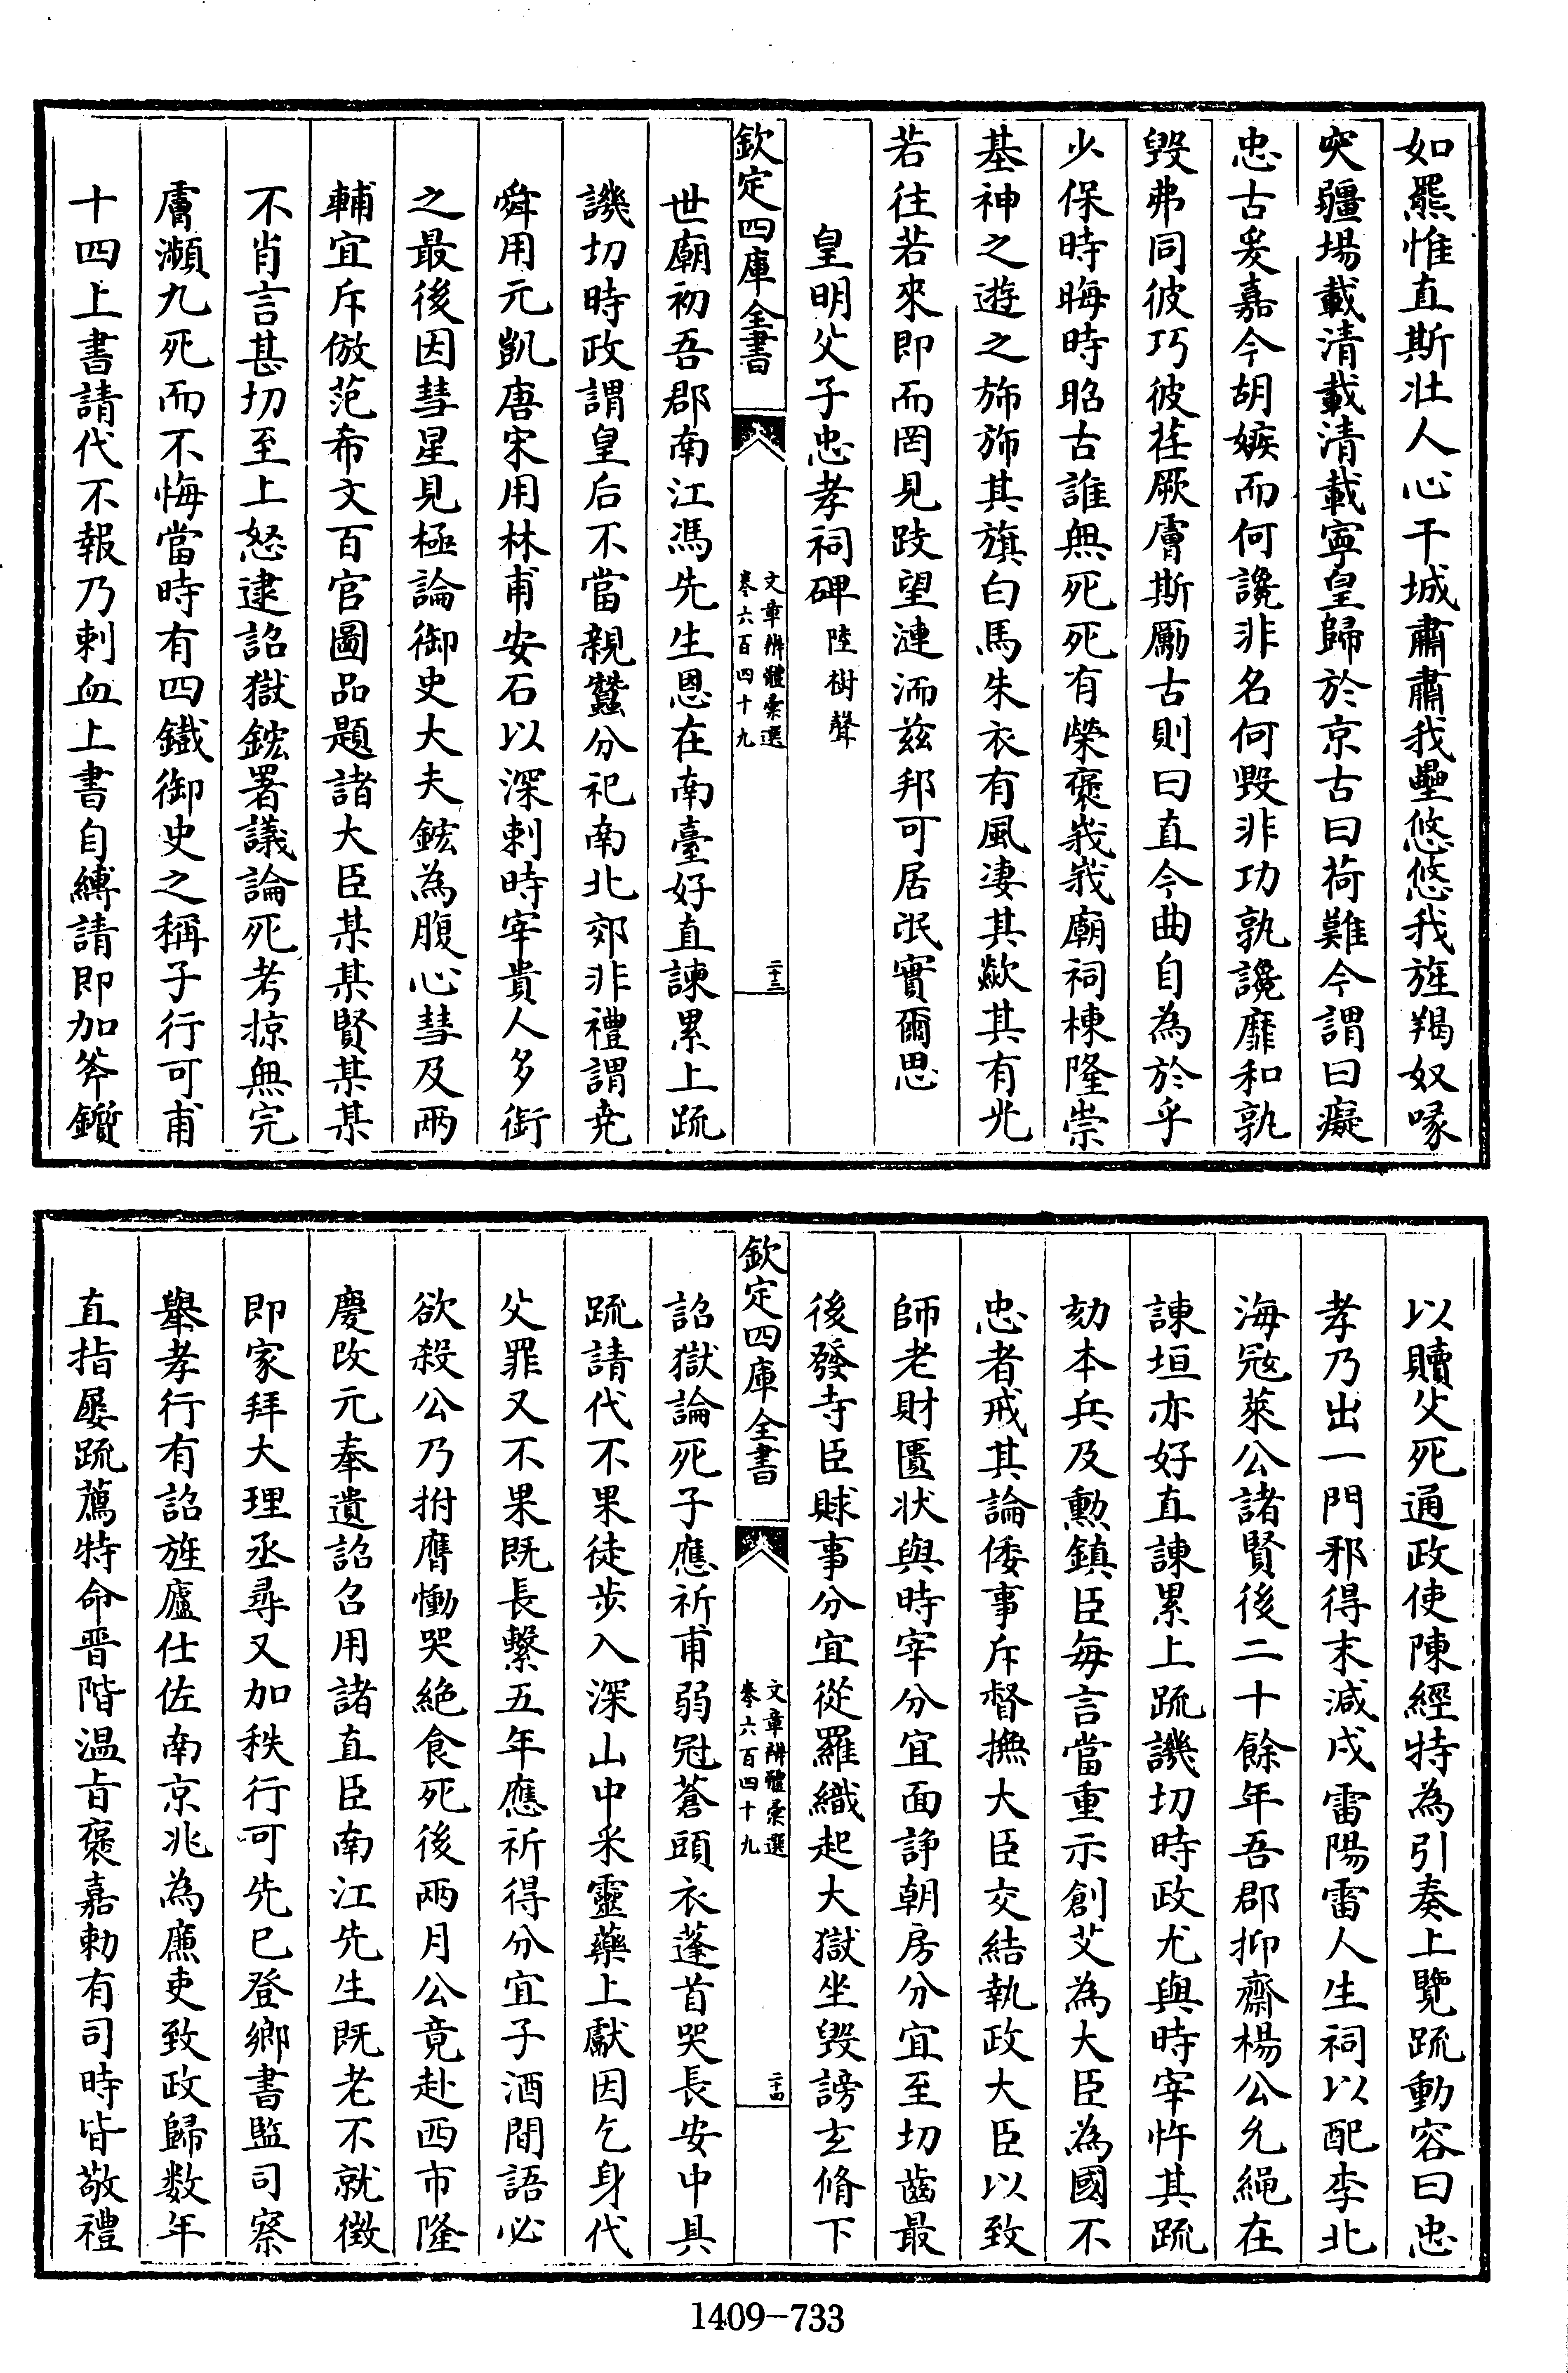 如羆惟直斯壯人心干城肅肅我壘悠悠我旌羯奴喙
突疆場載清載清載寧皇歸於京古曰荷難今謂曰癡
忠古爰嘉今胡嫉而何讒非名何毀非功孰讒靡和孰
毀弗同彼巧彼荏厥膚斯勵古則曰直今曲自為於乎
少保時晦時昭古誰無死死有榮褒峩峩廟祠棟隆崇
基神之遊之斾斾其旗白馬朱衣有風凄其歘其有光
若往若來即而罔見跂望漣洏兹邦可居泯實爾思
皇明父子忠孝祠碑陸樹聲
欽定四庫全書
文章辨體彙選
卷六百四十九
二十三
世廟初吾郡南江馮先生恩在南臺好直諫累上疏
譏切時政謂皇后不當親蠶分祀南北郊非禮謂堯
舜用元凱唐宋用林甫安石以深刺時宰貴人多銜
之最後因彗星見極論御史大夫鋐為腹心彗及兩
輔宜斥倣范希文百官圖品題諸大臣某某賢某某
不肖言甚切至上怒逮詔獄鋐署議論死考掠無完
膚瀕九死而不悔當時有四鐵御史之稱子行可甫
十四上書請代不報乃刺血上書自縛請即加斧鑕
以贖父死通政使陳經特為引奏上覽疏動容曰忠
孝乃出一門邪得末減戍雷陽雷人生祠以配李北
海冦萊公諸賢後二十餘年吾郡抑齋楊公允繩在
諫垣亦好直諫累上疏譏切時政尤與時宰忤其疏
劾本兵及勲鎮臣每言當重示創艾為大臣為國不
忠者戒其論倭事斥督撫大臣交結執政大臣以致
師老財匱狀與時宰分宜面諍朝房分宜至切齒最
後發寺臣賕事分宜從羅織起大獄坐毀謗玄脩下
欽定四庫全書
文章辨體彙選
卷六百四十九
二十四
詔獄論死子應祈甫弱冠蒼頭衣蓬首哭長安中具
疏請代不果徒步入深山中采靈藥上獻因乞身代
父罪又不果既長繫五年應祈得分宜子酒間語必
欲殺公乃拊膺慟哭絶食死後兩月公竟赴西市隆
慶改元奉遺詔召用諸直臣南江先生既老不就徵
即家拜大理丞尋又加秩行可先已登鄉書監司察
舉孝行有詔旌廬仕佐南京兆為亷吏致政歸数年
直指屡疏薦特命晋階温旨褒嘉勅有司時皆敬禮
1409-733